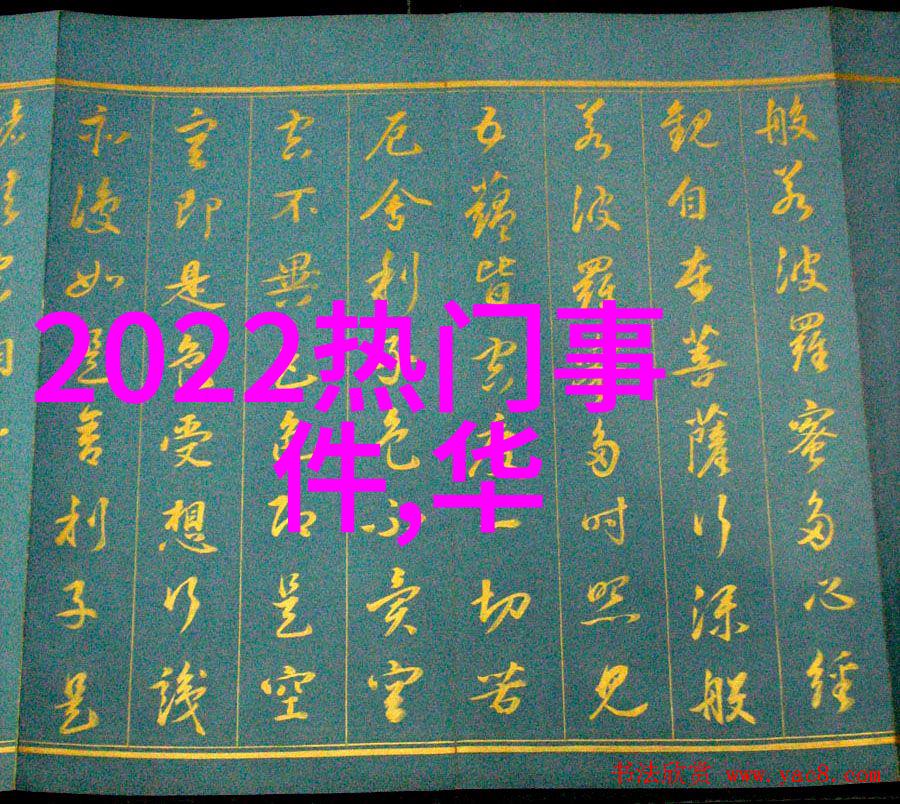 般若波羅蜜多心經
觀自在菩薩行深般
若波羅蜜多时照見
五蘊皆空度一切苦
厄舍利子色不異空
空不異色色即是空
空即是色受想行識
亦復如是舍利子是
2022热门事
件,华
书法欣赏 www.yac8.com